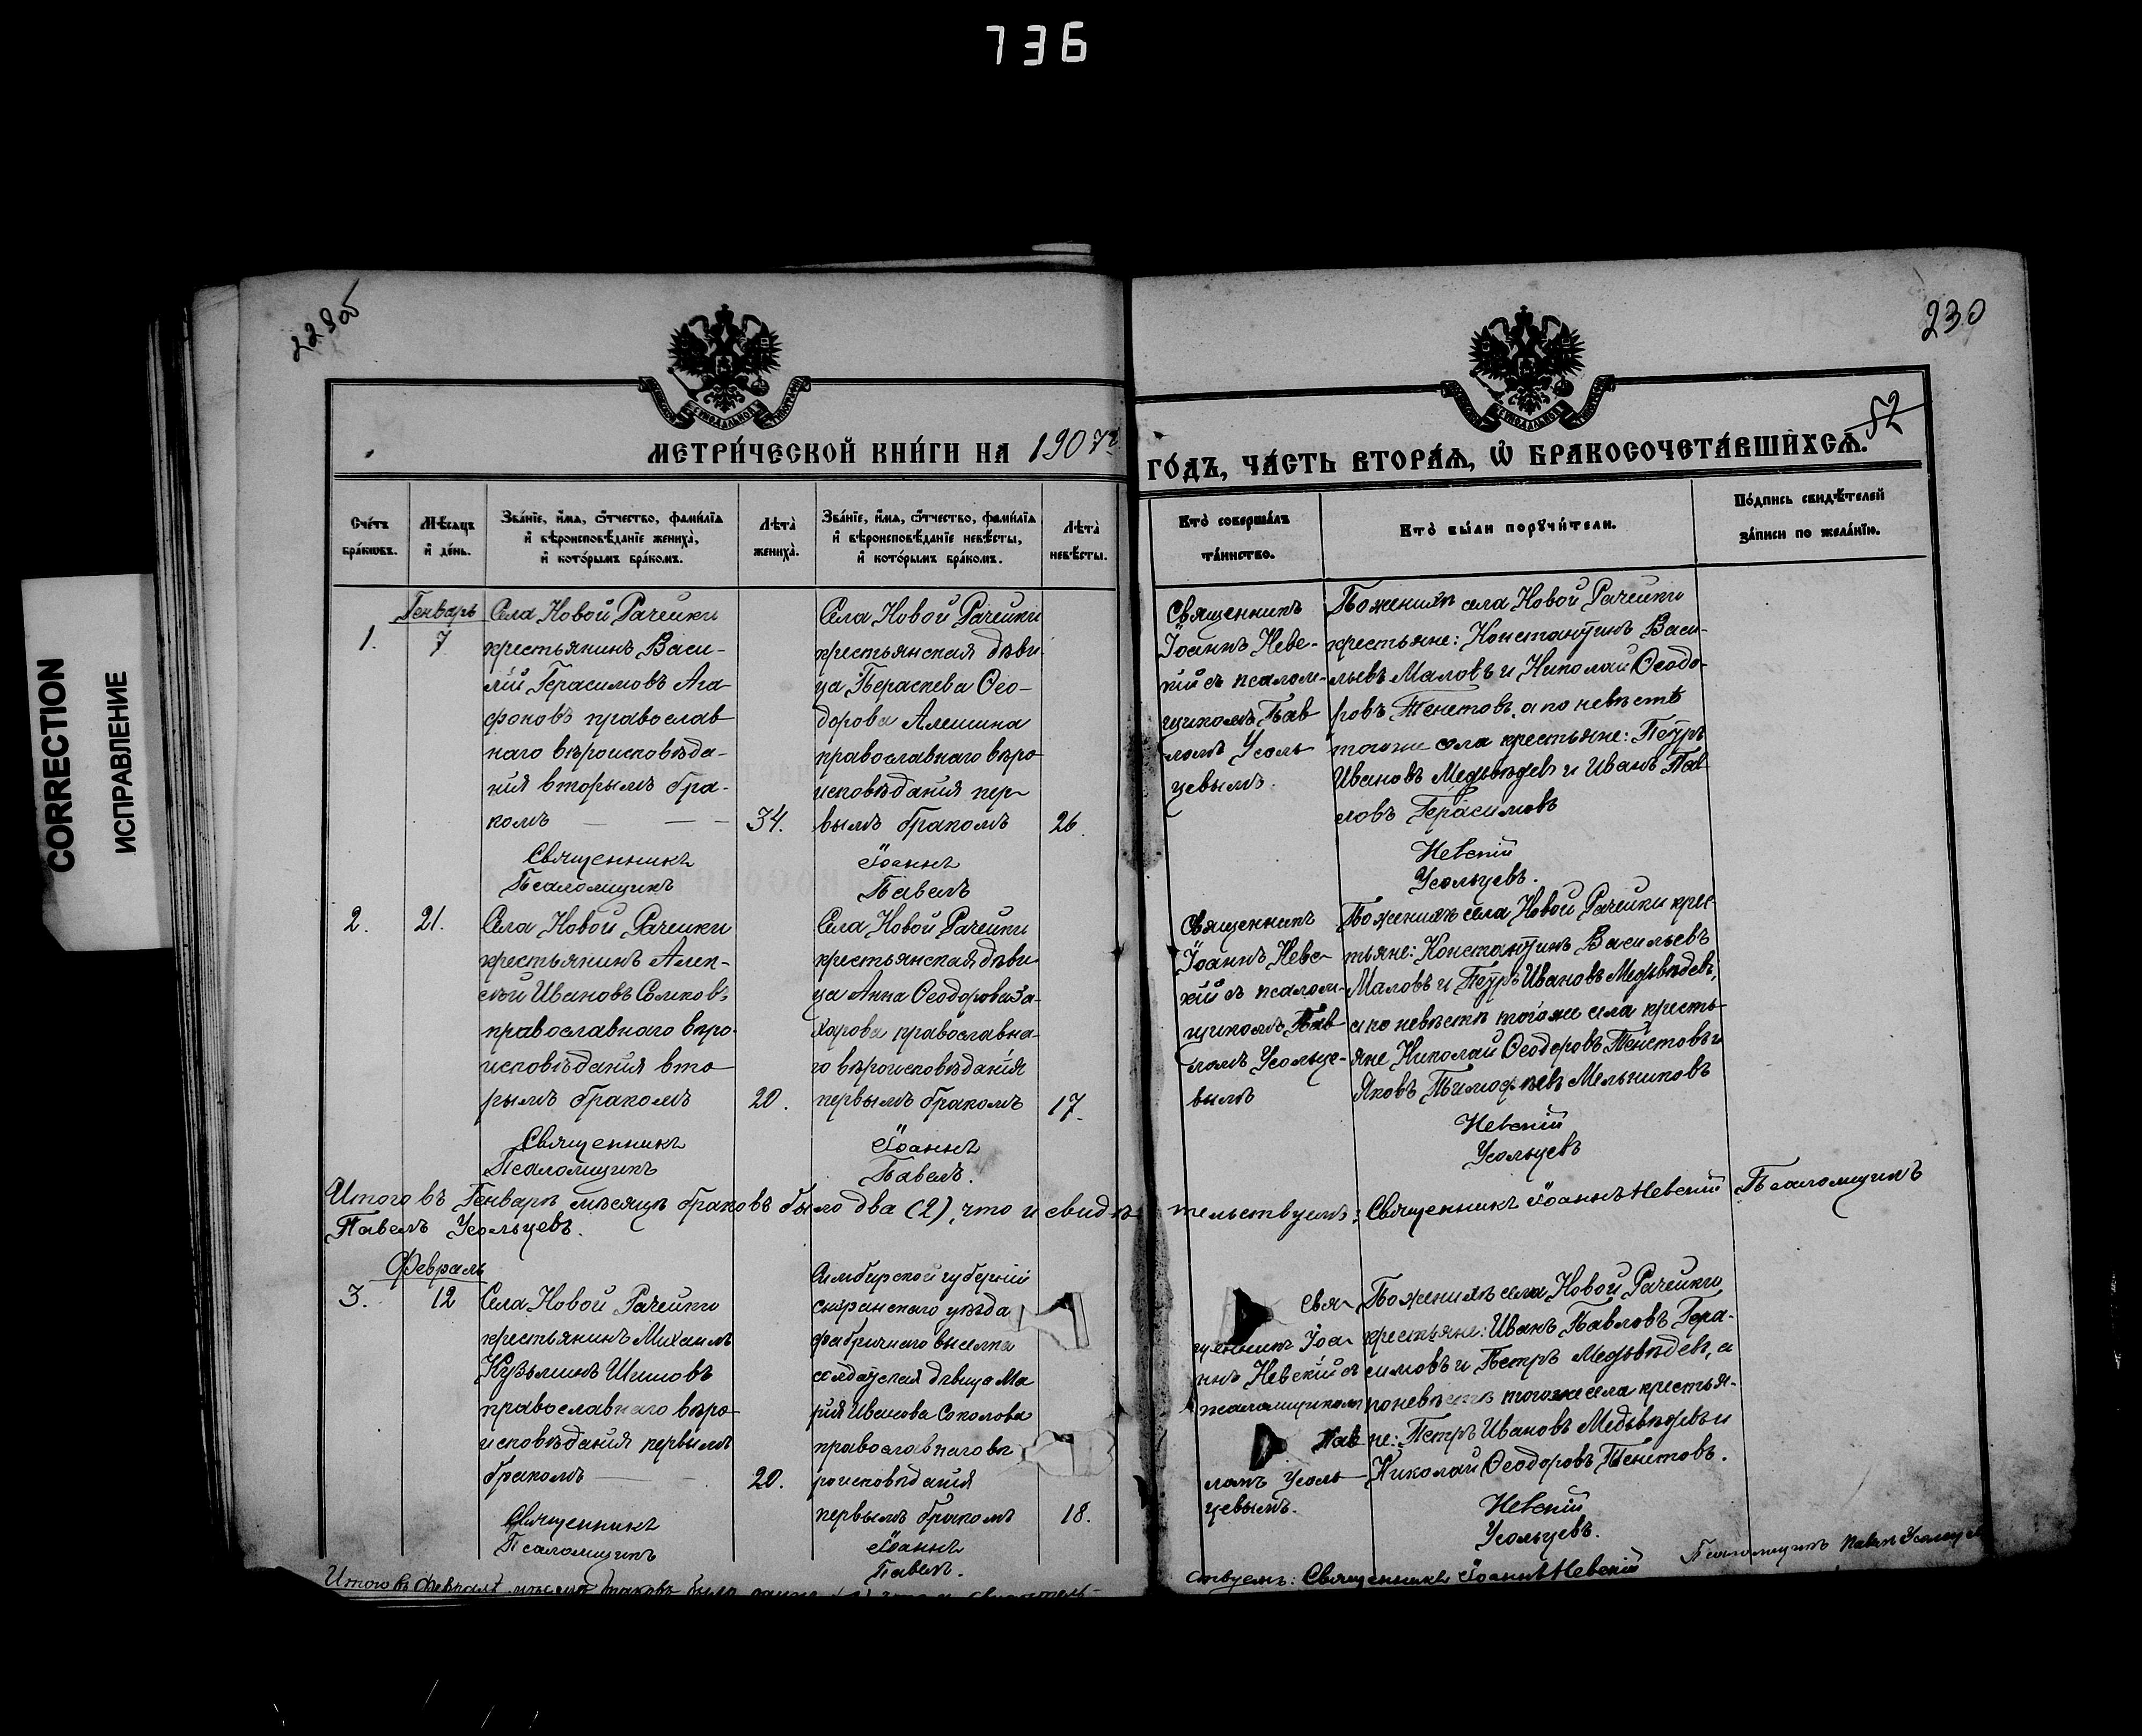 736
CORRECTION
ИСПРАВЛЕНИЕ
229об
230
52
МЕТРИ́ЧЕСКОЙ КНИ́ГИ НА 1907 г.
ГО́ДЪ, ЧА́СТЬ ВТОРА́Ѧ, Ѽ БРАКОСОЧЕТА́ВШИХСѦ.
Сче́тъ бра́кѡвъ.
Мѣ́сѧцъ и де́нь.
Зва́нїе, и́мѧ, ѻ́тчество, фами́лїѧ и вѣроисповѣ́данїе жениха̀, и кото́рымъ бра́комъ.
Лѣта̀ жениха̀.
Зва́нїе, и́мѧ, ѻ́тчество, фами́лїѧ и вѣроисповѣ́данїе невѣ́сты, и кото́рымъ бра́комъ.
Лѣта̀ невѣ́сты.
Кто̀ соверша́лъ та́инство.
Кто̀ бы́ли порꙋчи́тели.
По́дпись свидѣ́телей за́писи по жела́нїю.
Генварь
1.
7
Села Новой Рачейки
крестьянинъ Васи-
лій Герасимовъ Ага-
фоновъ православ
наго вѣроисповѣда-
нія вторымъ бра-
комъ
34.
Села Новой Рачейки
крестьянская дѣви
ца Параскева Ѳео-
дорова Алешина
православнаго вѣро
исповѣданія пер-
вымъ бракомъ
26.
Священникъ
Іоаннъ Невс-
кій съ псалом-
щикомъ Пав
ломъ Усоль
цевымъ.
По женихѣ села Новой Рачейки
крестьяне: Константинъ Васи-
льевъ Маловъ и Николай Ѳеодо-
ровъ Тенетовъ, а по невѣстѣ
тогоже села крестьяне: Петръ
Ивановъ Медвѣдевъ и Иванъ Пав
ловъ Герасимовъ
Священникъ Іоаннъ Невскій
Псаломщикъ Павелъ Усольцевъ.
2.
21.
Села Новой Рачейки
крестьянинъ Алек-
сѣй Ивановъ Сомовъ
православнаго вѣро-
исповѣданія вто
рымъ бракомъ
20.
Села Новой Рачейки
крестьянская дѣви
ца Анна Ѳеодорова За-
харова православна-
го вѣроисповѣданія
первымъ бракомъ
17.
Священникъ
Іоаннъ Невс-
кій съ псалом-
щикомъ Пав
ломъ Усольце-
вымъ
По женихѣ села Новой Рачейки крес-
тьяне: Константинъ Васильевъ
Маловъ и Петръ Ивановъ Медвѣдевъ,
а по невѣстѣ тогоже села кресть-
яне Николай Ѳеодоровъ Тенетовъ и
Яковъ Тимофѣевъ Мельниковъ
Священникъ Іоаннъ Невскій
Псаломщикъ Павелъ. Усольцевъ
Итого въ Генварѣ мѣсяцѣ браковъ было два (2), что и свидѣ тельствуемъ: Священникъ Іоаннъ Невскій Псаломщикъ
Павелъ Усольцевъ.
Февраль
3.
12
Села Новой Рачейки
крестьянинъ Михаилъ
Кузьминъ Шишовъ
православнаго вѣро
исповѣданія первымъ
бракомъ
20.
Симбирской губерніи
сызранскаго уѣзда
фабричнаго выселка
солдатская дѣвица Ма
рія Иванова Соколова
православнаго вѣ
роисповѣданія
первымъ бракомъ
18.
Свя-
щенникъ Іоа-
ннъ Невскій съ
псаломщиком
Пав
ломъ Усоль
цевымъ.
По женихѣ села Новой Рачейки
крестьяне: Иванъ Павловъ Гера-
симовъ и Петръ Медвѣдевъ, а
по невѣстѣ тогоже села крестья-
не: Петръ Ивановъ Медвѣдевъ и
Николай Ѳеодоровъ Тенетовъ.
Священникъ Іоаннъ Невскій
Псаломщикъ Павелъ. Усольцевъ.
Итого въ Февралѣ мѣсяцѣ браковъ было
ствуемъ: Священникъ Іоаннъ Невскій Псаломщикъ Павелъ Усольцевъ